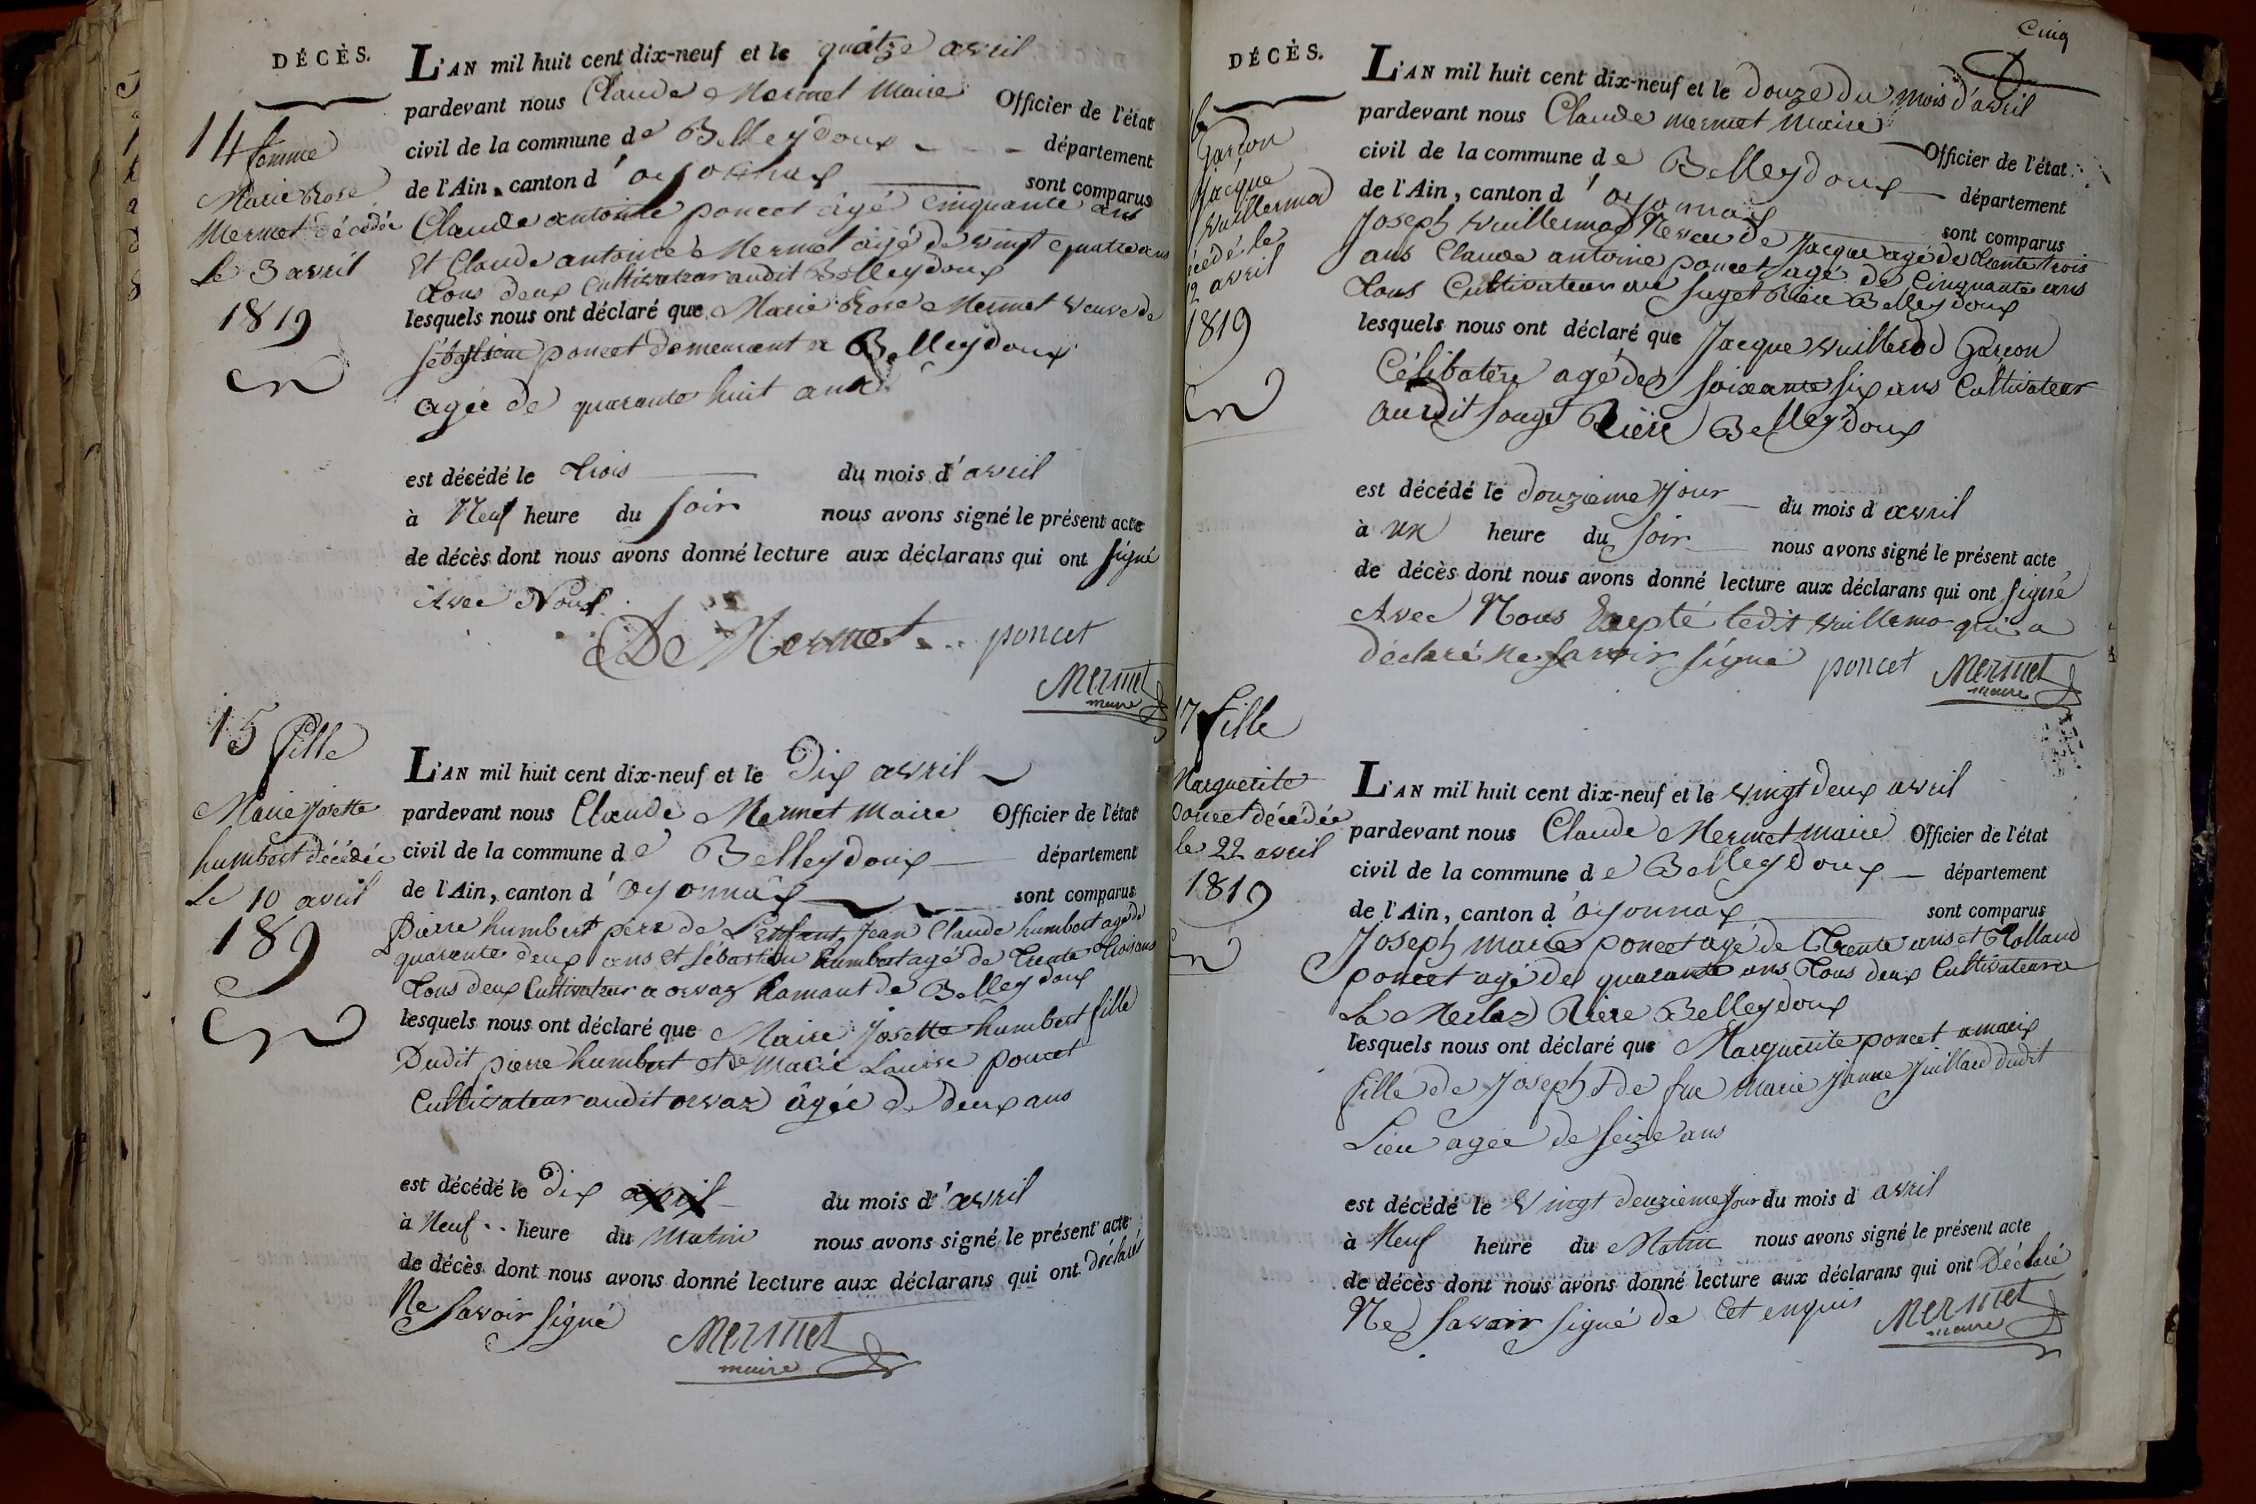 DÉCÈS.
14 femme
Marie Rose
Mermet décédée
Le 3 avril
1819
L'AN mil huit cent dix-neuf et le quatre avril
pardevant nous Claude Mermet Maire Officier de l'état
civil de la commune de Belleydoux département
de l'Ain, canton d'oyonnax sont comparus
Claude antoine poncet âgé cinquante ans
Et Claude antoine Mermet âgé de vingt quatre ans
Tous deux Cultivateur audit Belleydoux
lesquels nous ont déclaré que Marie Rose Mermet veuve de
sébastien poncet demeurant a Belleydoux
agée de quarante huit ans
est décédé le trois du mois d'avril
à Neuf heure du soir nous avons signé le présent acte
de décès dont nous avons donné lecture aux déclarans qui ont signé
Avec Nous
De Mermet poncet
Mermet
maire
15 fille
Marie Josette
humbert décédée
Le 10 avril
1819
L'AN mil huit cent dix-neuf et le Dix avril
pardevant nous Claude Mermet Maire Officier de l'état
civil de la commune de Belleydoux département
de l'Ain, canton d'oyonnax sont comparus
Pierre humbert père de L'Enfant, Jean Claude humbert agé de
quarente deux ans et sébastien humbert agé de Trente trois ans
Tous deux Cultivateur a orvaz hamaut de Belleydoux
lesquels nous ont déclaré que Marie Josette humbert fille
Dudit pierre humbert et de Marie Louise poncet
Cultivateur audit orvaz âgée de deux ans
est décédé le Dix avril du mois d'avril
à Neuf heure du Matin nous avons signé le présent acte
de décès dont nous avons donné lecture aux déclarans qui ont déclarés
Ne savoir signé
Mermet
maire
Cinq
DÉCÈS.
Garçon
Jacque
Vuillermod
décédé le
12 avril
1819
L'AN mil huit cent dix-neuf et le Douze du mois d'avril
pardevant nous Claude mermet Maire Officier de l'état
civil de la commune de Belleydoux département
de l'Ain, canton d'oyonnax sont comparus
Joseph Vuillermod Neveu de Jacque agé de trente trois
ans Claude antoine poncet agé de Cinquante ans
Tous Cultivateur au Riere Belleydoux
lesquels nous ont déclaré que Jacque Vuillerod Garçon
Célibatere agé de soixante six ans Cultivateur
audit Riere Belleydoux
est décédé le douzieme Jour du mois d avril
à un heure du soir nous avons signé le présent acte
de décès dont nous avons donné lecture aux déclarans qui ont signé
Avec Nous Exepté ledit Vuillermo qui a
déclaré ne savoir signé poncet Mermet
maire
17 fille
Marguerite
poncet décédée
le 22 avril
1819
L'AN mil huit cent dix-neuf et le vingt deux avril
pardevant nous Claude Mermet Maire Officier de l'état
civil de la commune de Belleydoux département
de l'Ain, canton d'oyonnax sont comparus
Joseph Marie poncet agé de Trente ans et Rolland
poncet agé de quarante ans Tous deux Cultivateur a
La Riere Belleydoux
lesquels nous ont déclaré que Marguerite poncet
fille de Joseph & de fue Marie Janne Juillard dudit
Lieu agée de seize ans
est décédé le vingt deuzieme Jour du mois d avril
à Neuf heure du Matin nous avons signé le présent acte
de décès dont nous avons donné lecture aux déclarans qui ont Déclaré
Ne savoir signé de Cet enquis Mermet
maire